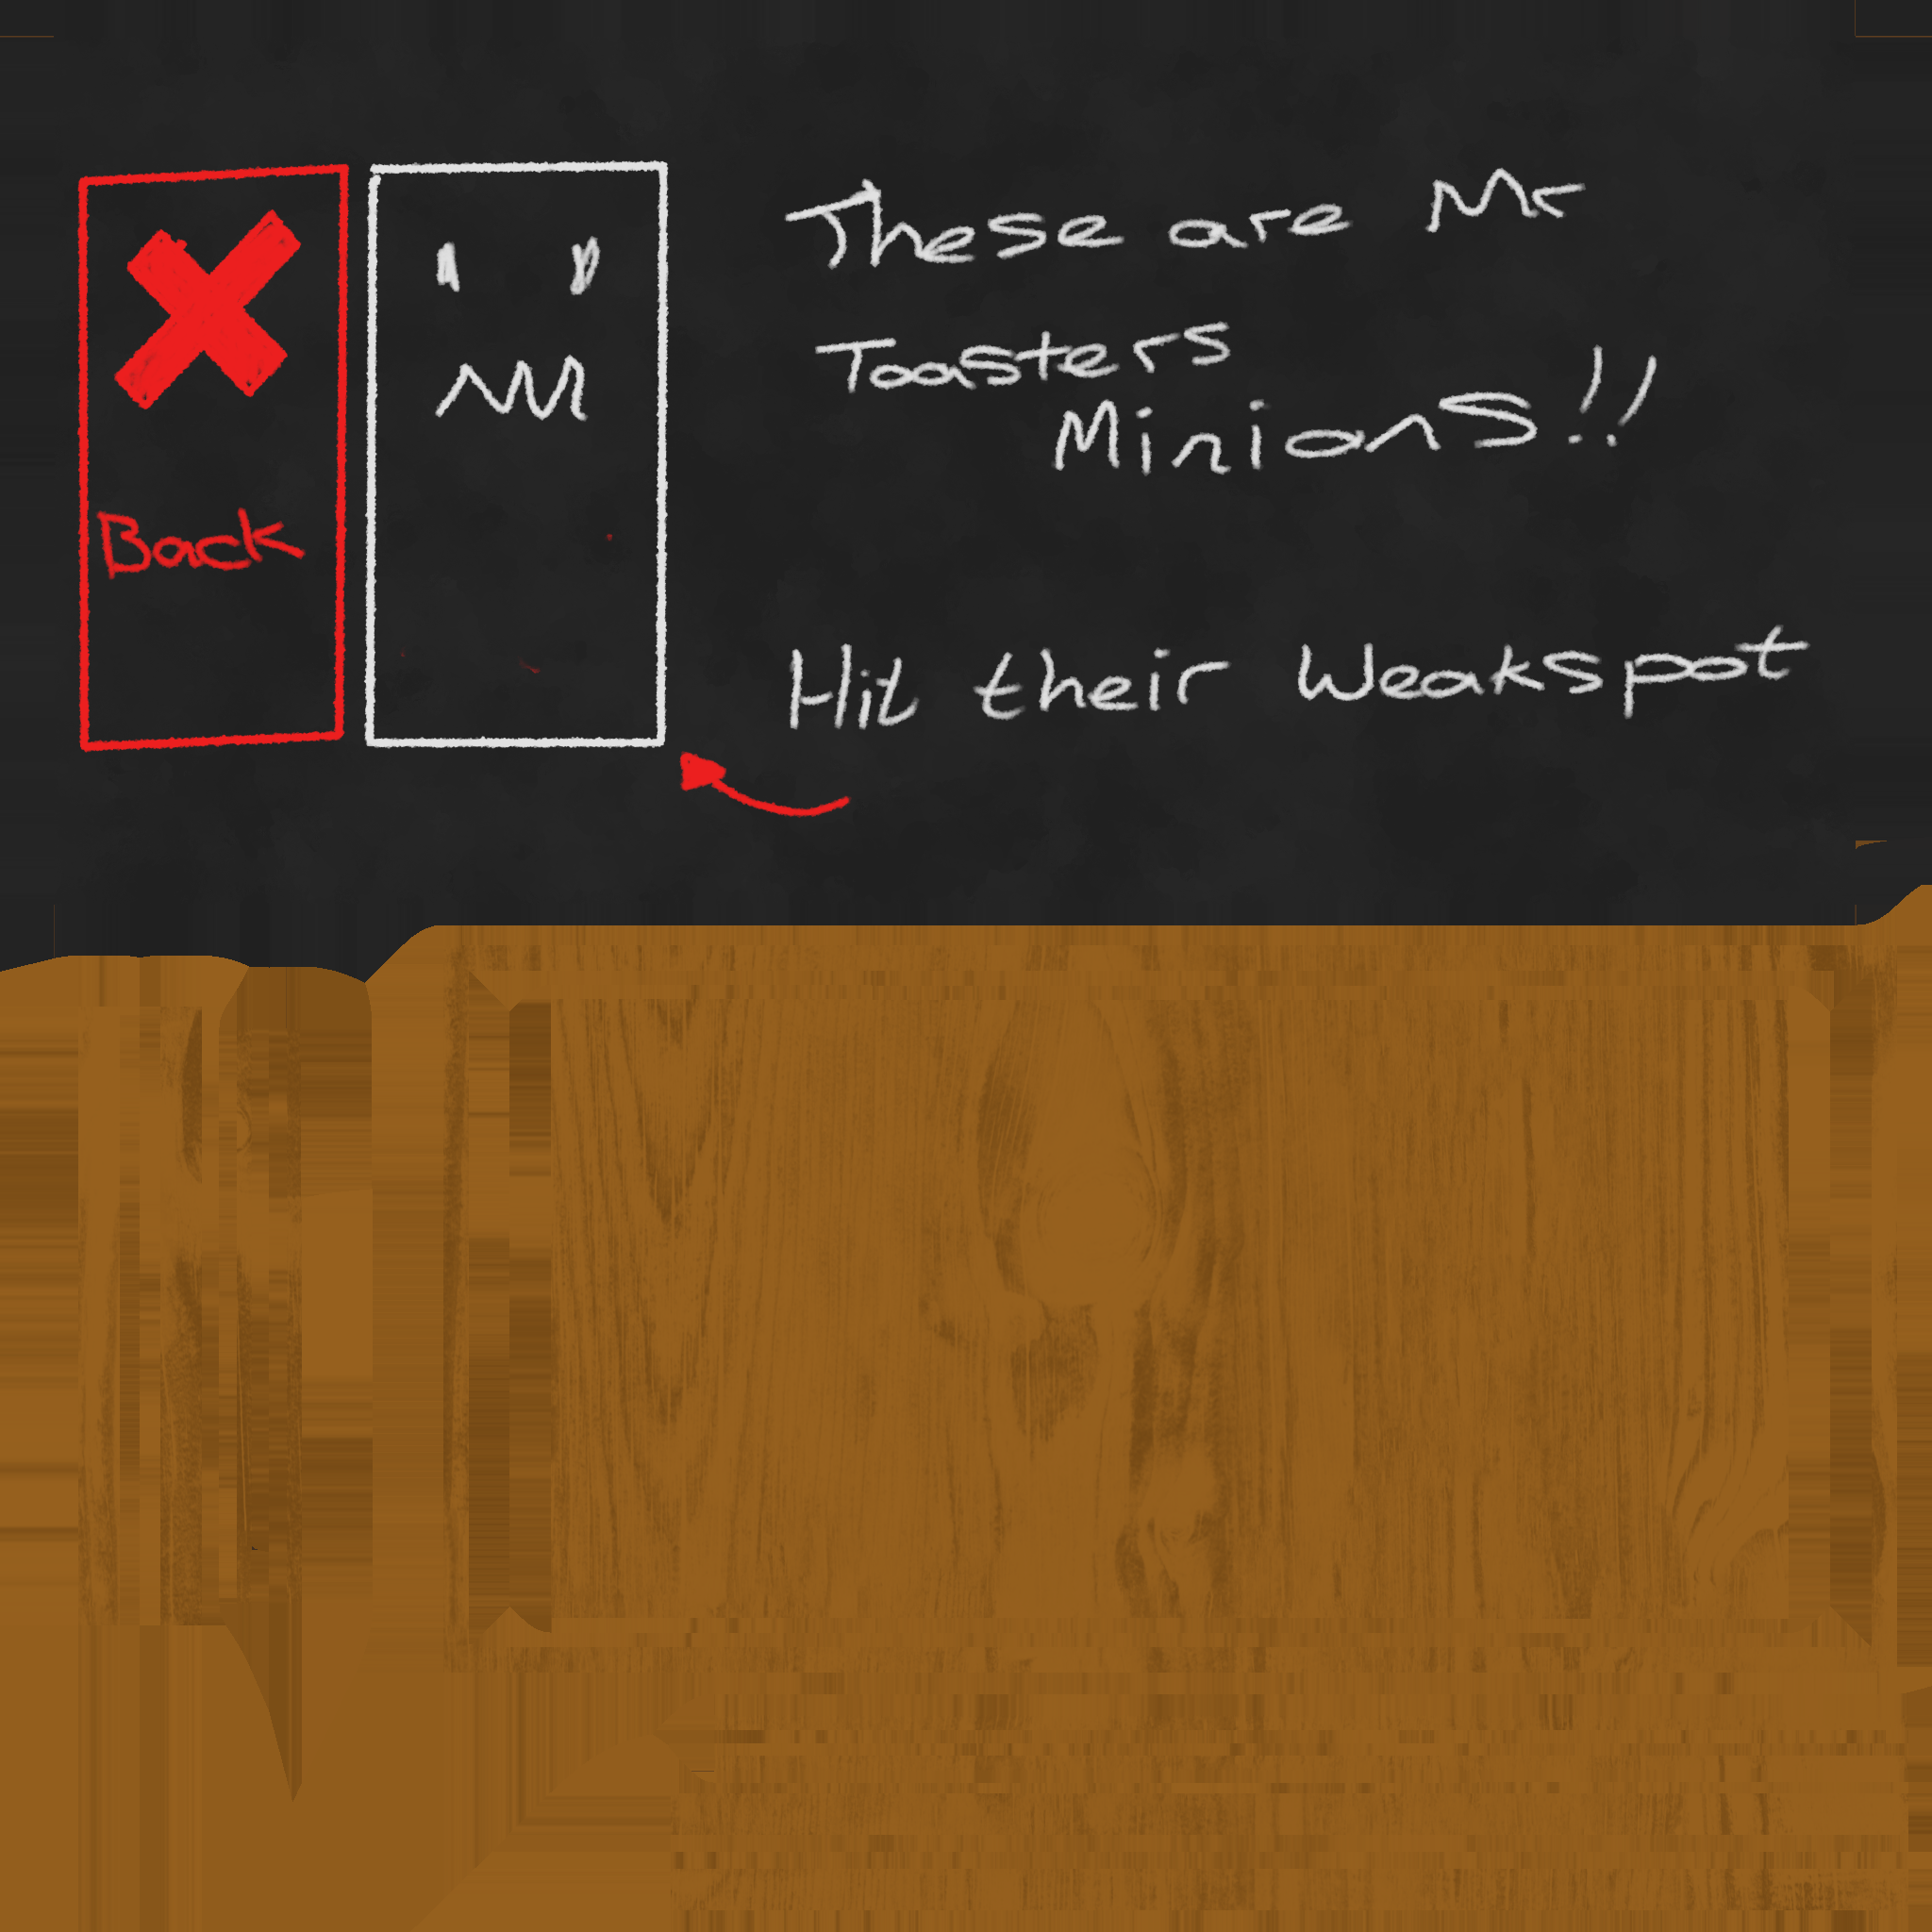 Back
These are Mr
Toasters
Minions!!
Hit their Weakspot